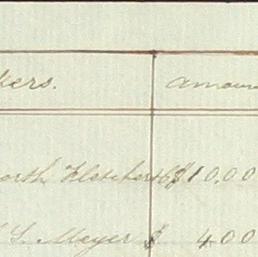 kers. Amoun
orth Fletcher $10.00
S. Meyer $ 400